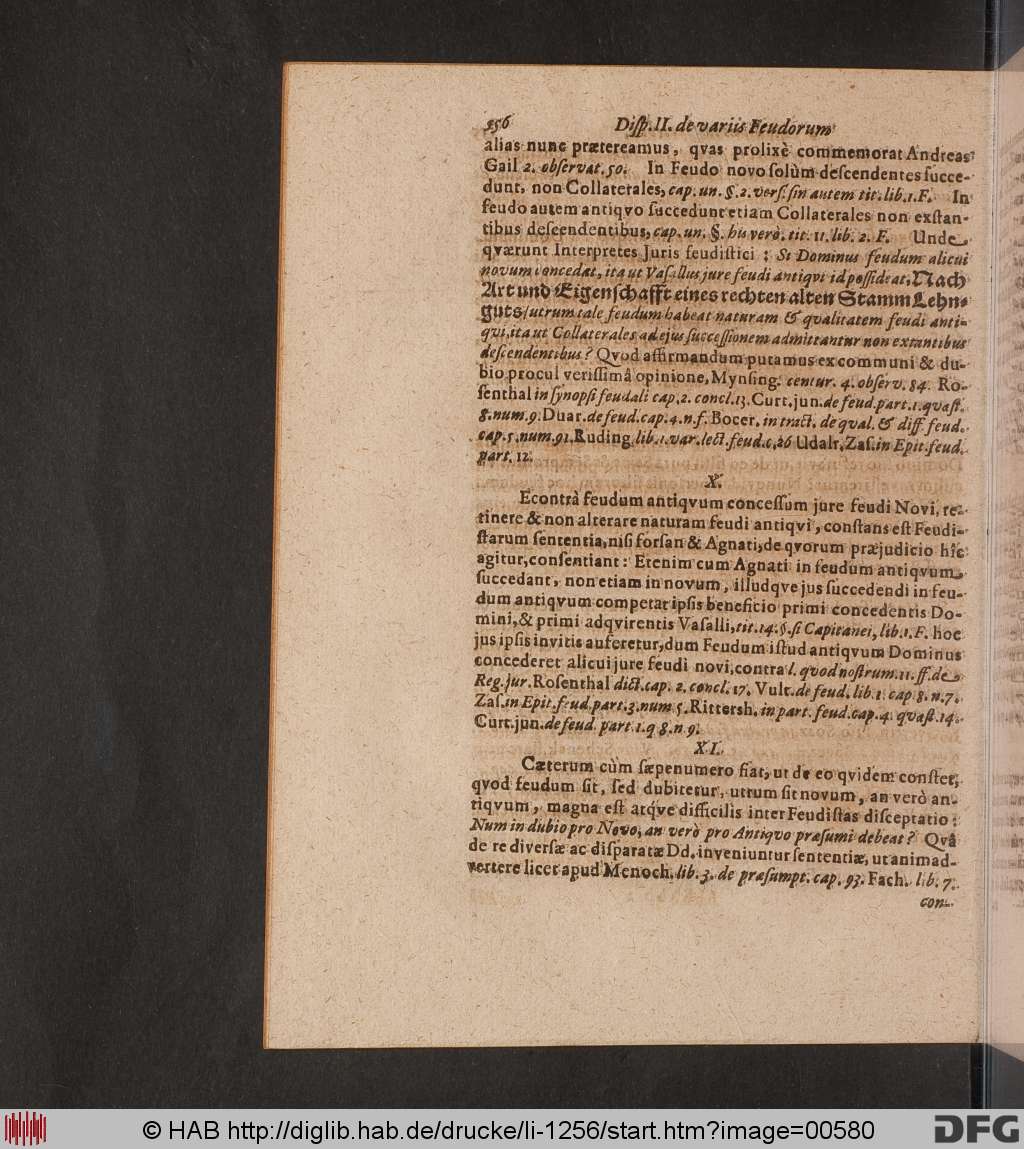 556 Diſp. II. de variis Feudorum
alias nunc prætereamus, qvas prolixè commemorat Andreas
Gail 2. obſervat. 50. In Feudo novo ſolùm deſcendentes ſucce-
dunt, non Collaterales, cap. un. §. 2. verſ. ſin autem tit. lib. 1. F. In
feudo autem antiqvo ſuccedunt etiam Collaterales non exſtan-
tibus deſcendentibus, cap. un. §. his verò. tit. 11. lib. 2. F. Unde
qværunt Interpretes Juris feudiſtici: Si Dominus feudum alicui
novum concedat, ita ut Vaſallus jure feudi antiqvi id poſſideat, Nach
Art und Eigenſchafft eines rechten alten Stamm Lehn-
guts / utrum tale feudum habeat naturam & qvalitatem feudi anti-
qvi, ita ut Collaterales ad ejus ſucceſſionem admittantur non extantibus
deſcendentibus? Qvod affirmandum putamus ex communi & du-
bio procul veriſſimâ opinione, Mynſing. centur. 4. obſerv. 84. Ro-
ſenthal in ſynopſi feudali cap. 2. concl. 13. Curt. jun. de feud. part. 1. qvæſt.
8. num. 9. Duar. de feud. cap. 4. n. f. Bocer. in tract. de qval. & diff. feud.
cap. 5. num. 91. Ruding. lib. 1. var. lect. feud. c. 26 Udalr. Zaſ. in Epit. feud.
part. 12.
X.
Econtrà feudum antiqvum conceſſum jure feudi Novi, re-
tinere & non alterare naturam feudi antiqvi, conſtans eſt Feudi-
ſtarum ſententia, niſi forſan & Agnati, de qvorum præjudicio hîc
agitur, conſentiant: Etenim cum Agnati in feudum antiqvum
ſuccedant, non etiam in novum, illudqve jus ſuccedendi in feu-
dum antiqvum competat ipſis beneficio primi concedentis Do-
mini, & primi adqvirentis Vaſalli, tit. 14. §. ſi Capitanei, lib. 1. F. hoc
jus ipſis invitis auferetur, dum Feudum iſtud antiqvum Dominus
concederet alicui jure feudi novi, contra l. quod noſtrum. 11. ff. de
Reg. jur. Roſenthal dict. cap. 2. concl. 17. Vult. de feud. lib. 1. cap 8. n. 7.
Zaſ. in Epit. feud. part. 3. num 5. Rittersh. in part. feud. cap. 4. qvæſt. 14.
Curt. jun. de feud. part. 1. q 8. n 9.
XI.
Cæterum cùm ſæpenumero fiat, ut de eo qvidem conſtet,
qvod feudum ſit, ſed dubitetur, utrum ſit novum, an verò an-
tiqvum, magna eſt atqve difficilis inter Feudiſtas diſceptatio:
Num in dubio pro Novo, an verò pro Antiqvo præſumi debeat? Qvâ
de re diverſæ ac diſparatæ Dd. inveniuntur ſententiæ, ut animad-
vertere licet apud Menoch. lib. 3. de præſumpt. cap. 93. Fach. lib. 7.
con-
© HAB http://diglib.hab.de/drucke/li-1256/start.htm?image=00580
DFG